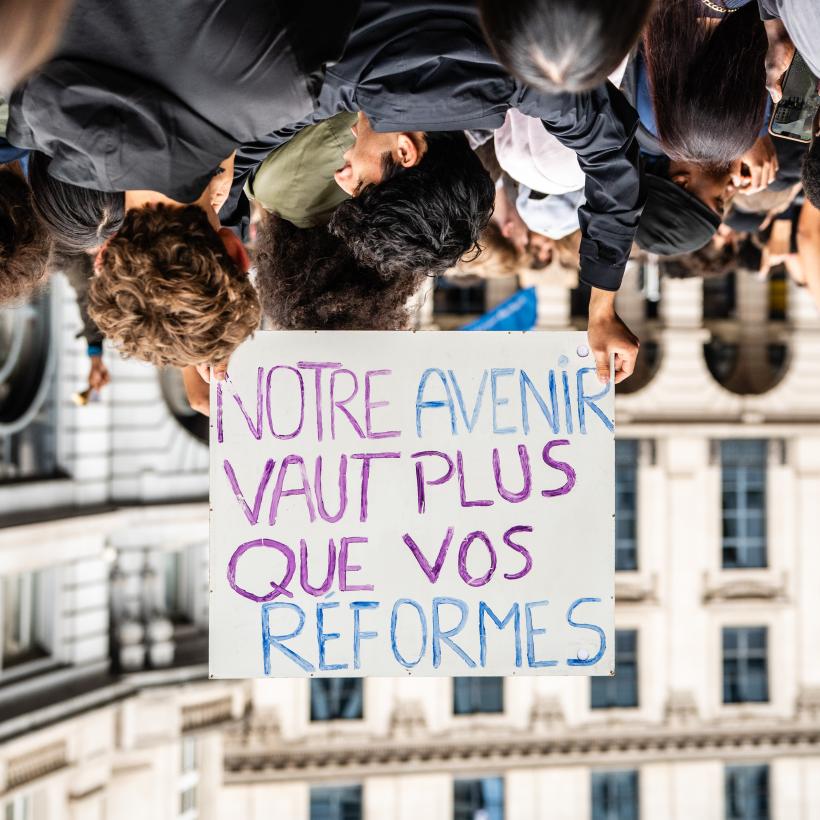 NOTRE AVENIR
VAUT PLUS
QUE VOS
RÉFORMES